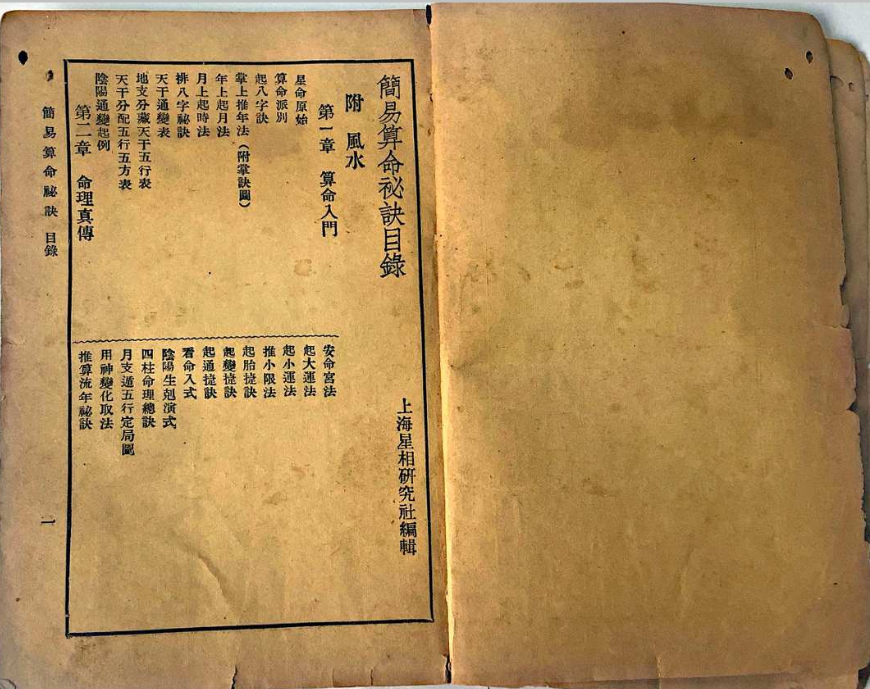 簡易算命祕訣目錄
上海星相研究社編輯
附 風水
第一章 算命入門
星命原始
算命派別
起八字訣
掌上推年法（附掌訣圖）
年上起月法
月上起時法
排八字祕訣
天干通變表
地支分藏天干五行表
天干分配五行五方表
陰陽通變起例
第二章 命理真傳
安命宮法
起大運法
起小運法
推小限法
起胎捷訣
起變捷訣
起通捷訣
看命入式
陰陽生剋演式
四柱命理總訣
月支遁五行定局圖
用神變化取法
推算流年祕訣
簡易算命祕訣 目錄
一